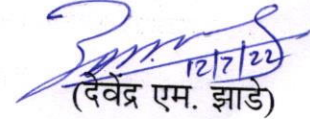 12/7/22
(देवेंद्र एम. झाडे)